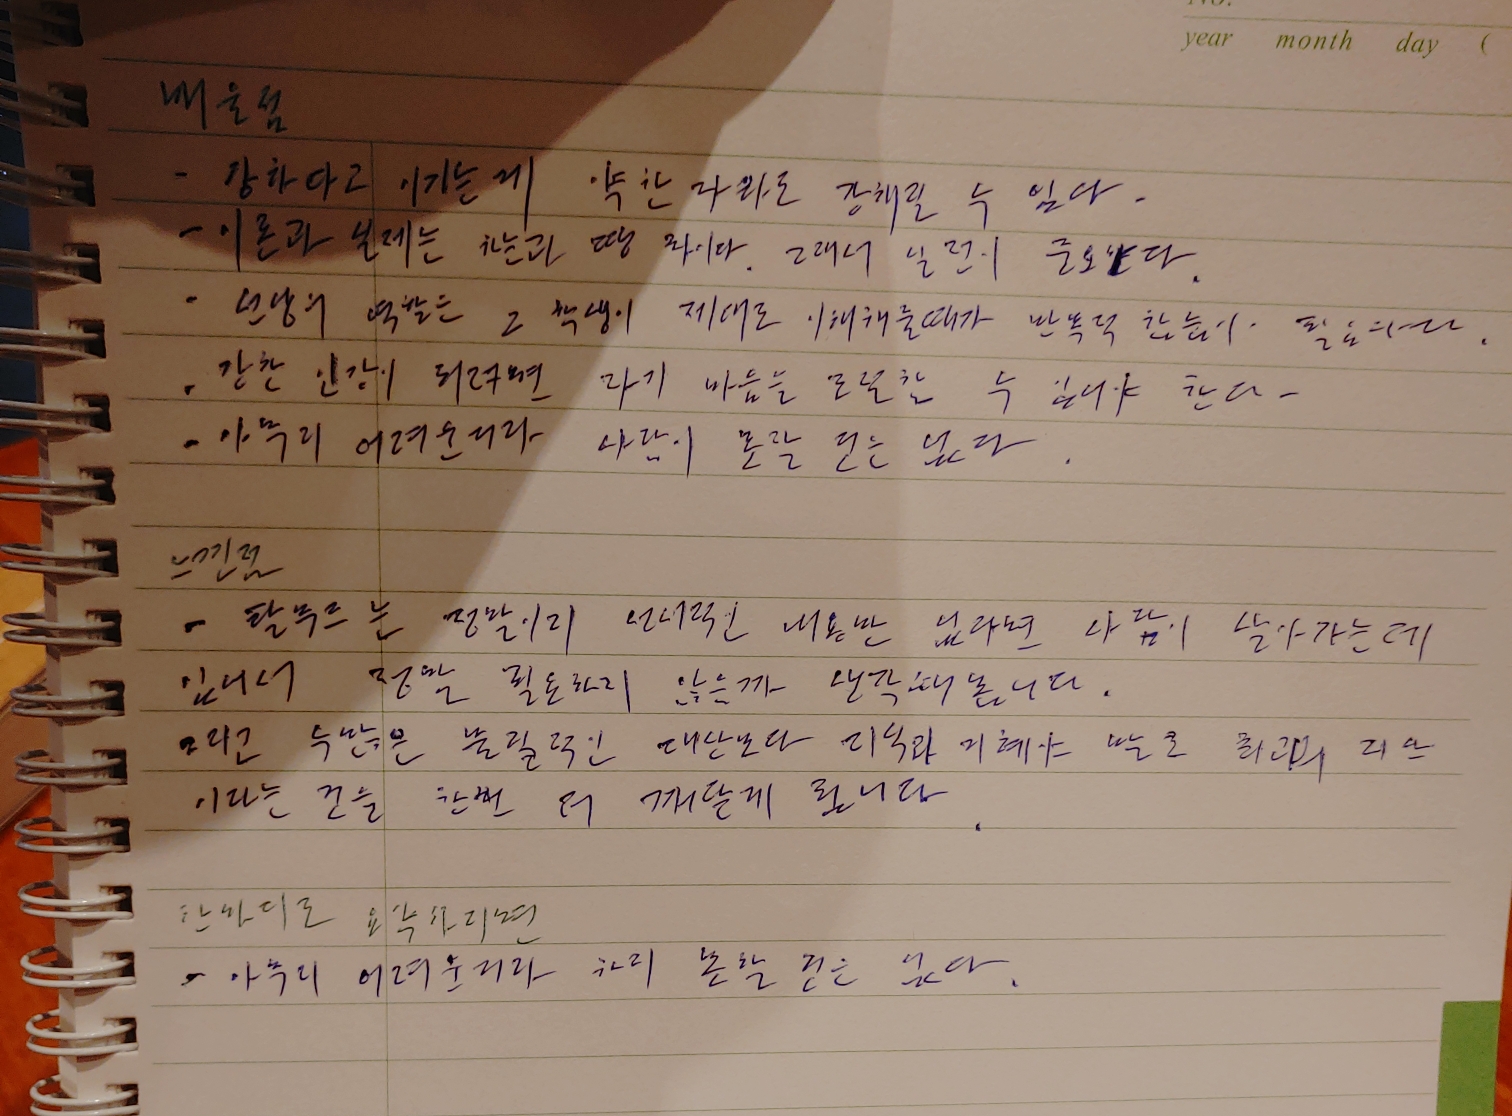 year month day (
배울점
- 강하다고 이기는게 약한자라도 강해질 수 있다.
- 이론과 실제는 하늘과 땅 차이다. 그래서 실전이 중요하다.
- 선생의 역할은 그 학생이 제대로 이해해줄때가 반복적 학습이 필요하다.
- 강한 인간이 되려면 자기 마음을 조절할 수 있어야 한다-
- 아무리 어려운거라 사람이 못할 건은 없다.
느낀점
- 탈무드는 정말이지 이 내용만 있다면 사람이 살아가는데
있어서 정말 필요하지 않은가 생각해봅니다.
그리고 수많은 물질적인 재산보다 지식과 지혜야 말로 최고의
이라는 것을 한번 더 깨닫게 됩니다.
한마디로 요약하자면
- 아무리 어려운거라 하지 못할 건은 없다.